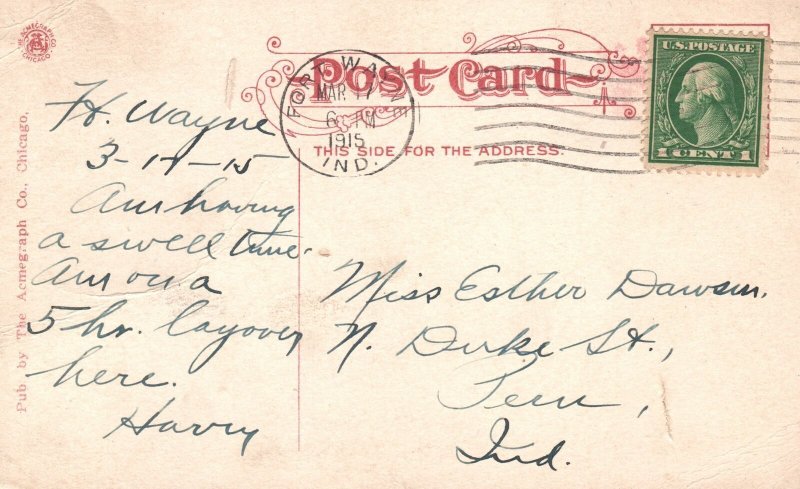 THE ACMEGRAPH CO.
CHICAGO
Post Card
THIS SIDE FOR THE ADDRESS.
FORT WAYNE
MAR 17
6 PM
1915
IND.
U.S. POSTAGE
1 CENT 1
Pub by The Acmegraph Co., Chicago.
Ft. Wayne
3-17-15
Am having
a swell time.
Am on a
5 hr. layover
here.
Harry
Miss Esther Dawson,
N. Duke St.,
Peru,
Ind.